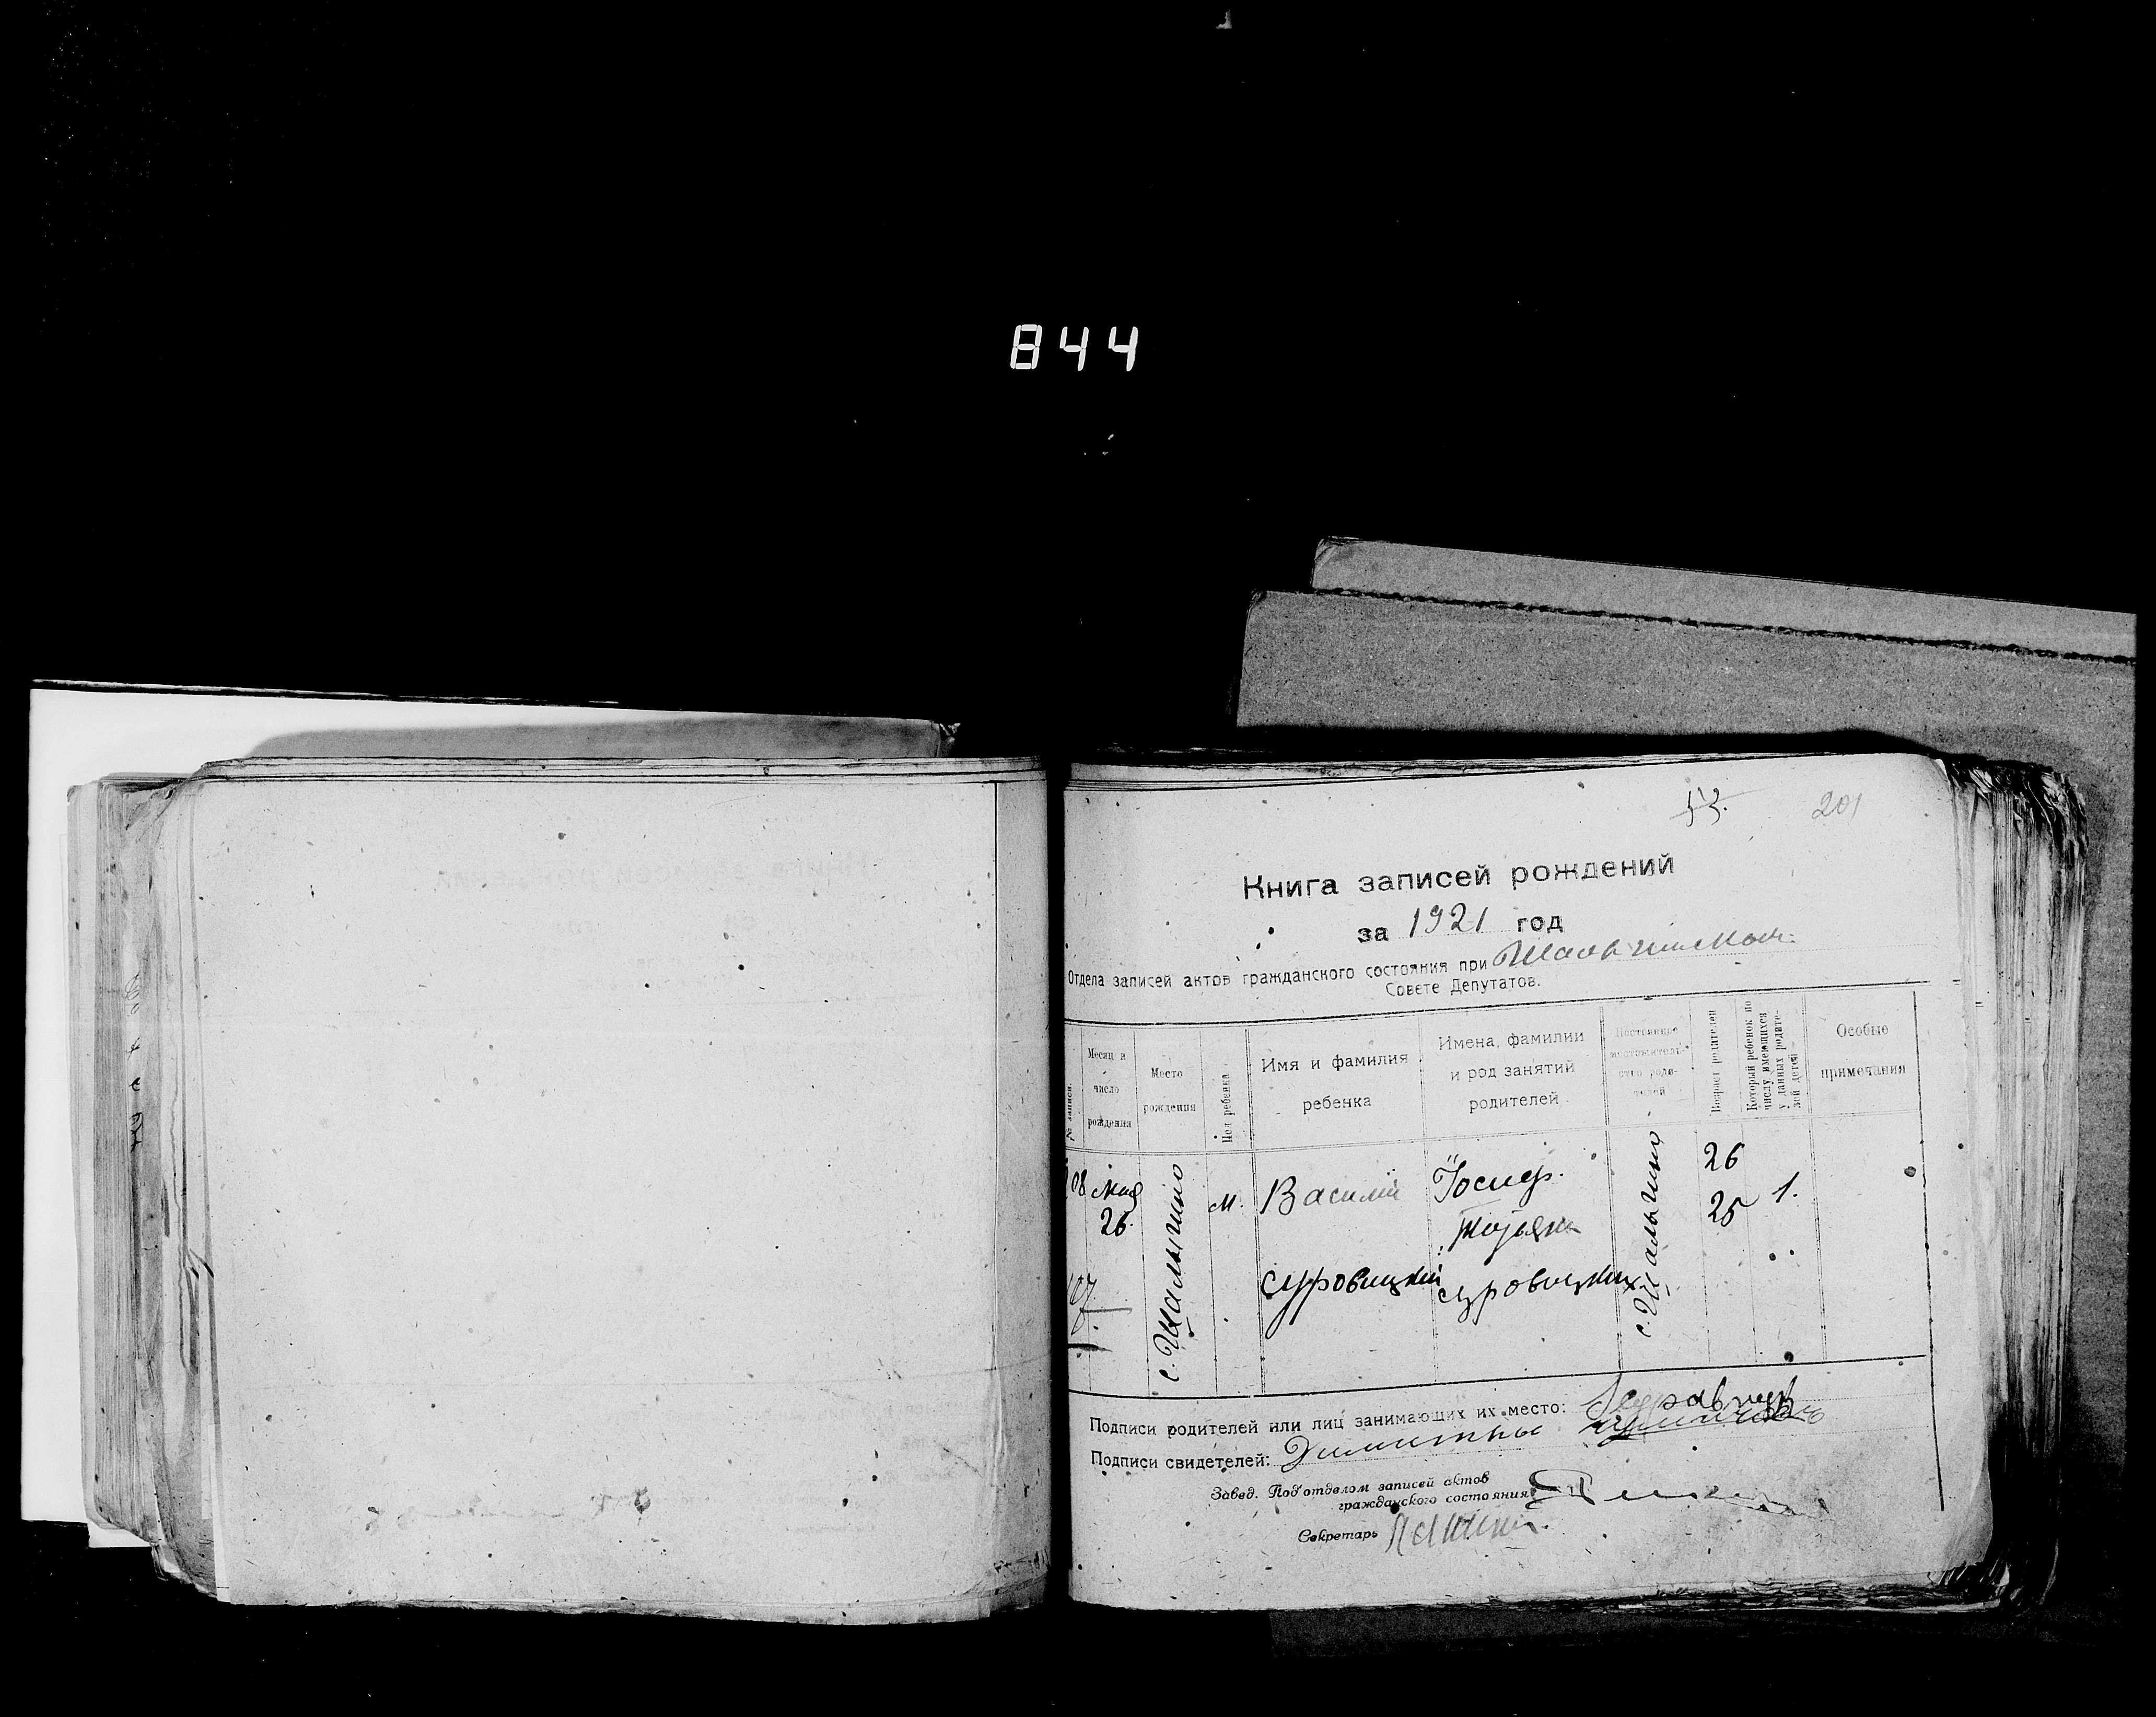 844
201
Книга записей рождений
за 1921 год
Отдела записей актов гражданского состояния при
Совете Депутатов.
№ записи.
Месяц и
число
рождения
Место
рождения
Пол ребенка
Имя и фамилия
ребенка
Имена, фамилии
и род занятий
родителей
Постоянное
местожитель-
ство роди-
телей
Возраст родителей
Который ребенок по
числу имеющихся
у данных родите-
лей детей
Особые
примечания
мая
26.
с. Шалыгино
м.
Василий
Суровицкий
Іосиф.
Суровицких
с. Шалыгино
26
25
1.
Подписи родителей или лиц занимающих их место:
Подписи свидетелей:
Завед. Подотделом записей актов
гражданского состояния
Секретарь